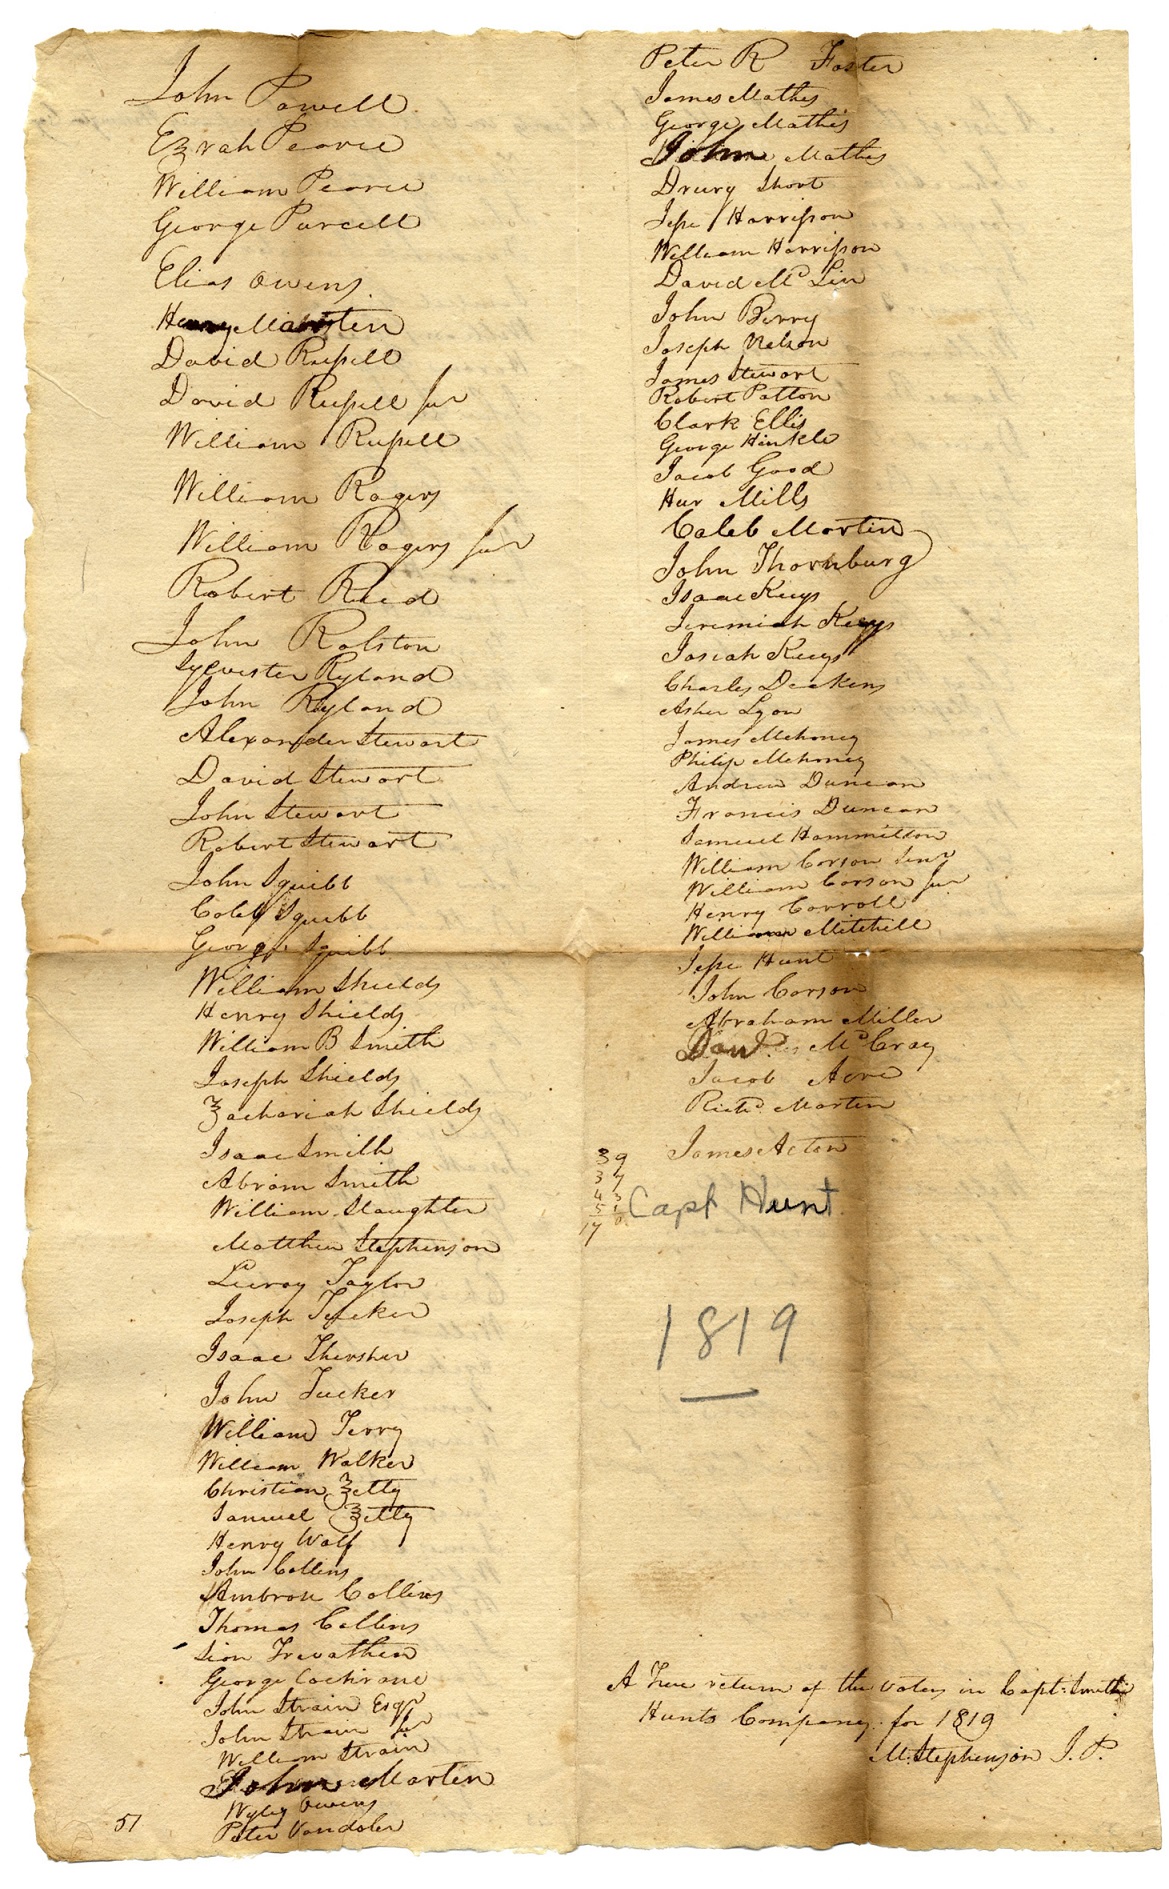 John Powell
Ezrah Pearce
William Pearce
George Purcell
Elias Owens
Henry Marten
David Russell
David Russell Jur
William Russell
William Rogers
William Rogers Jur
Robert Reed
John Rolston
Sylvester Ryland
John Ryland
Alexander Stewart
David Stewart
John Stewart
Robert Stewart
John Squibb
Caleb Squibb
George Squibb
William Shields
Henry Shields
William B Smith
Joseph Shields
Zachariah Shields
Isaac Smith
Abram Smith
William Slaughter
Matthew Stephenson
Leeroy Taylor
Joseph Tucker
Isaac Thersher
John Tucker
William Terry
William Walker
Christian Zetty
Samuel Zetty
Henry Wolf
John Collins
Ambrose Collins
Thomas Collins
Sion Trevathen
George Cochrane
John Strain Esqr
John Strain Jur
William Strain
John Marten
Wyley Owens
Peter Vandoler
51
Peter R Foster
James Mathis
George Mathis
John Mathis
Drury Short
Jesse Harrisson
William Harrisson
David Mc Lin
John Berry
Joseph Nelson
James Stewart
Robert Patton
Clark Ellis
George Hinkle
Jacob Good
Hur Mills
Caleb Martin
John Thornburg
Isaac Keeys
Jeremiah Keeys
Josiah Keeys
Charles Deakens
Asher Lyon
James Mehoney
Philip Mehoney
Andrew Duncan
Francis Duncan
Samuel Hammilton
William Corson Senr
William Corson Jur
Henry Carroll
William Mitchell
Jesse Hunt
John Corson
Abraham Miller
Danl Mc Cray
Jacob Acre
Richd Marten
James Acton
39
37
43
51
17
Capt Hunt
1819
A True return of the voters in Capt Smith
Hunts Company for 1819
M. Stephenson J. P.